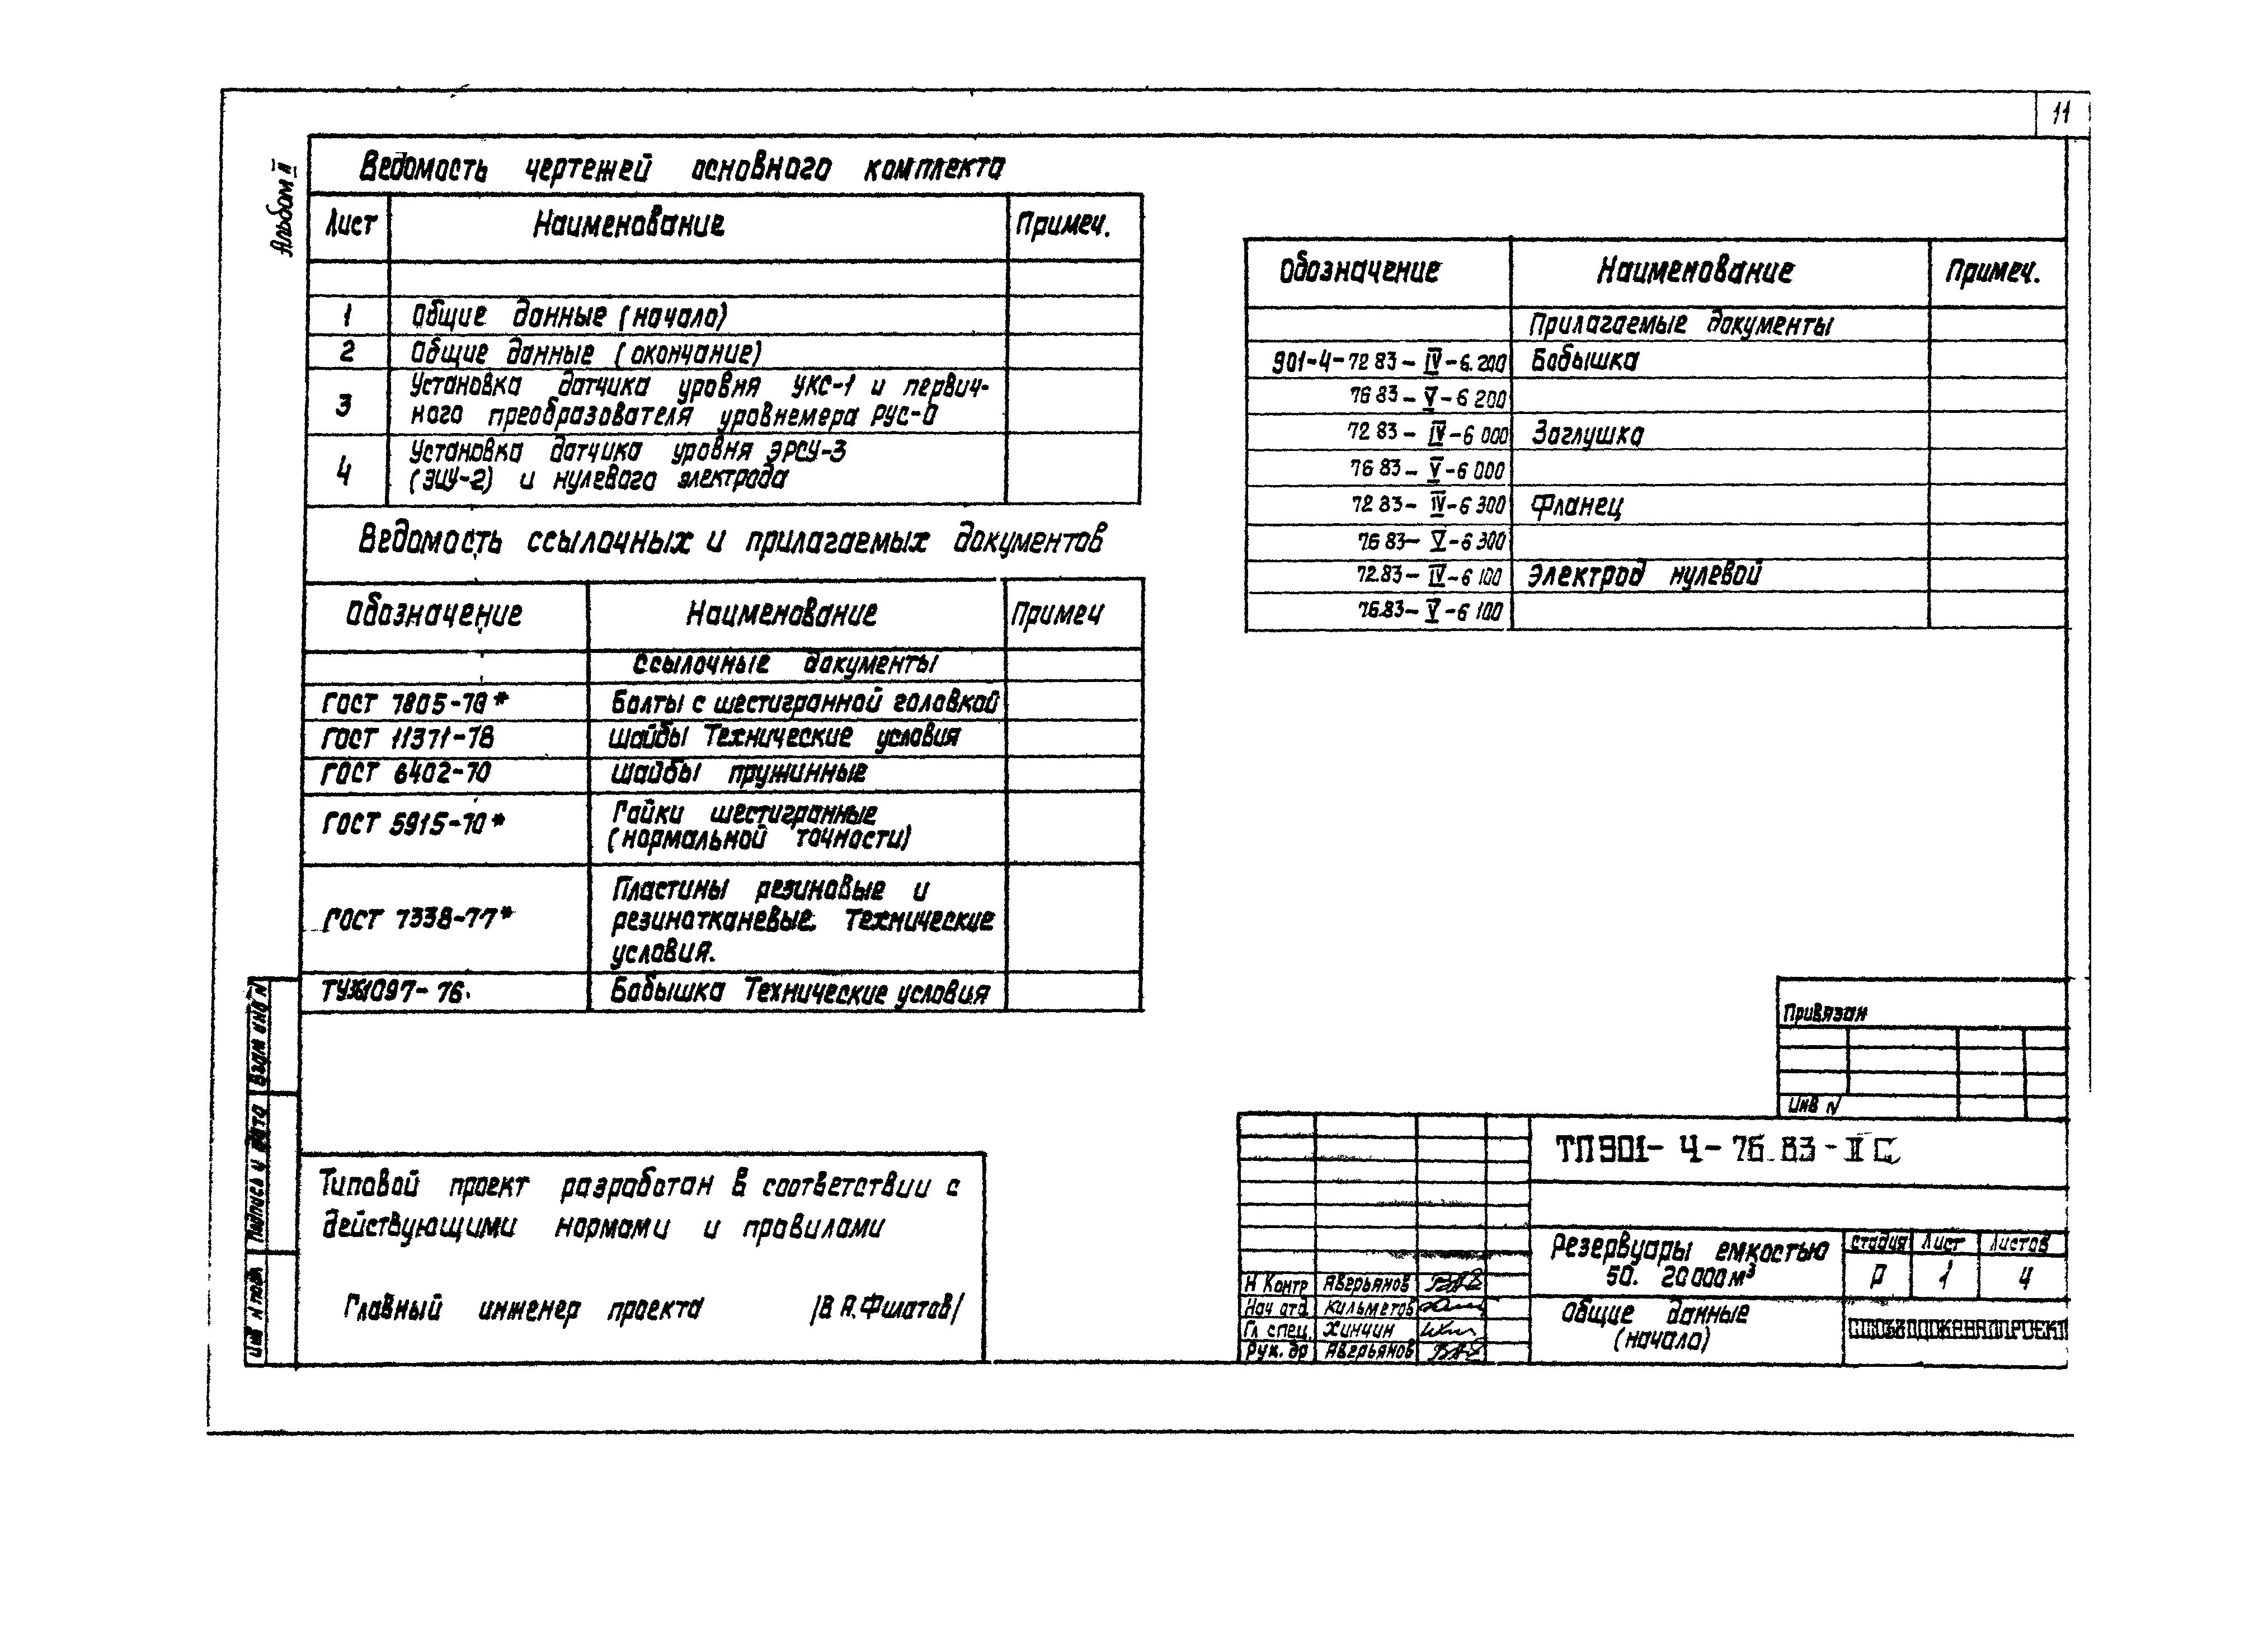 11
Альбом II
Ведомость чертежей основного комплекта
Лист Наименование Примеч.
1 Общие данные (начало)
2 Общие данные (окончание)
3 Установка датчика уровня УКС-1 и первич-
ного преобразователя уровнемера РУС-0
4 Установка датчика уровня ЭРСУ-3
(ЭИУ-2) и нулевого электрода
Ведомость ссылочных и прилагаемых документов
Обозначение Наименование Примеч
Ссылочные документы
ГОСТ 7805-70* Болты с шестигранной головкой
ГОСТ 11371-78 Шайбы Технические условия
ГОСТ 6402-70 Шайбы пружинные
ГОСТ 5915-70* Гайки шестигранные
(нормальной точности)
ГОСТ 7338-77* Пластины резиновые и
резинотканевые. Технические
условия.
1097-76. Бобышка Технические условия
Обозначение Наименование Примеч.
Прилагаемые документы
901-4-72 83-IV-6.200 Бобышка
76 83-V-6 200
72 83-IV-6 000 Заглушка
76 83-V-6 000
72 83-IV-6 300 Фланец
76 83-V-6 300
72.83-IV-6 100 Электрод нулевой
76.83-V-6 100
Типовой проект разработан в соответствии с
действующими нормами и правилами
Главный инженер проекта /В А.Филатов/
Взам инв N
Подпись и дата
Инв N подл
Привязан
Инв N
ТП 901-4-76.83-II С
Резервуары емкостью
50. 20 000 м³
Стадия Лист Листов
Р 1 4
Общие данные
(начало)
СОЮЗВОДОКАНАЛПРОЕКТ
Н Контр Аверьянов
Нач отд. Кильметов
Гл спец. Хинчин
Рук. др Аверьянов